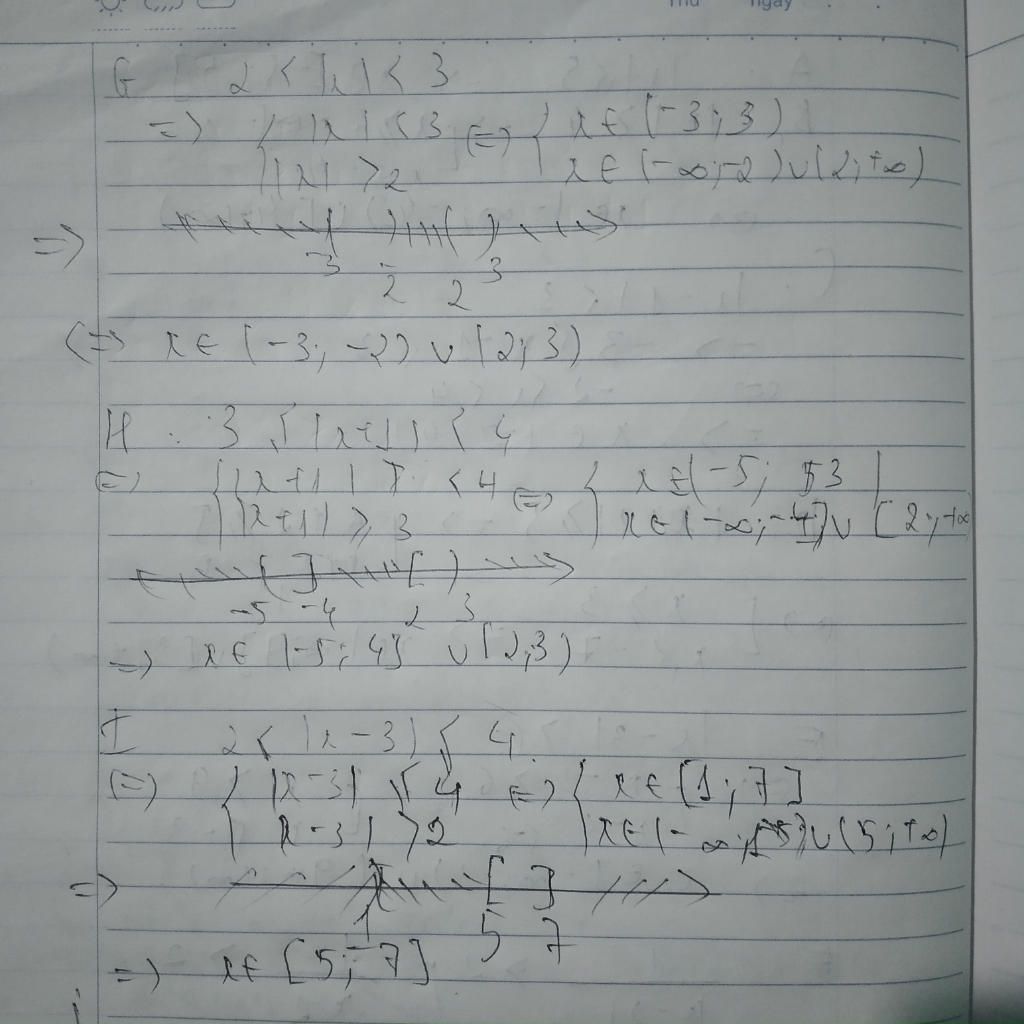 Thứ ngày
G 2 < |x| < 3
=> { |x| < 3 <=> { x ∈ (-3; 3)
|x| > 2 x ∈ (-∞; -2) ∪ (2; +∞)
=>
-3 -2 2 3
<=> x ∈ (-3; -2) ∪ (2; 3)
H : 3 ≤ |x+1| < 4
<=> { |x+1| < 4 <=> { x ∈ (-5; 3
|x+1| ≥ 3 x ∈ (-∞; -4] ∪ [2; +∞
-5 -4 2 3
=> x ∈ (-5; 4] ∪ [2;3)
I 2 < |x-3| ≤ 4
<=> { |x-3| ≤ 4 <=> { x ∈ [1; 7]
|x-3| > 2 x ∈ (-∞; ) ∪ (5; +∞)
=>
1 5 7
=> x ∈ [5; 7]